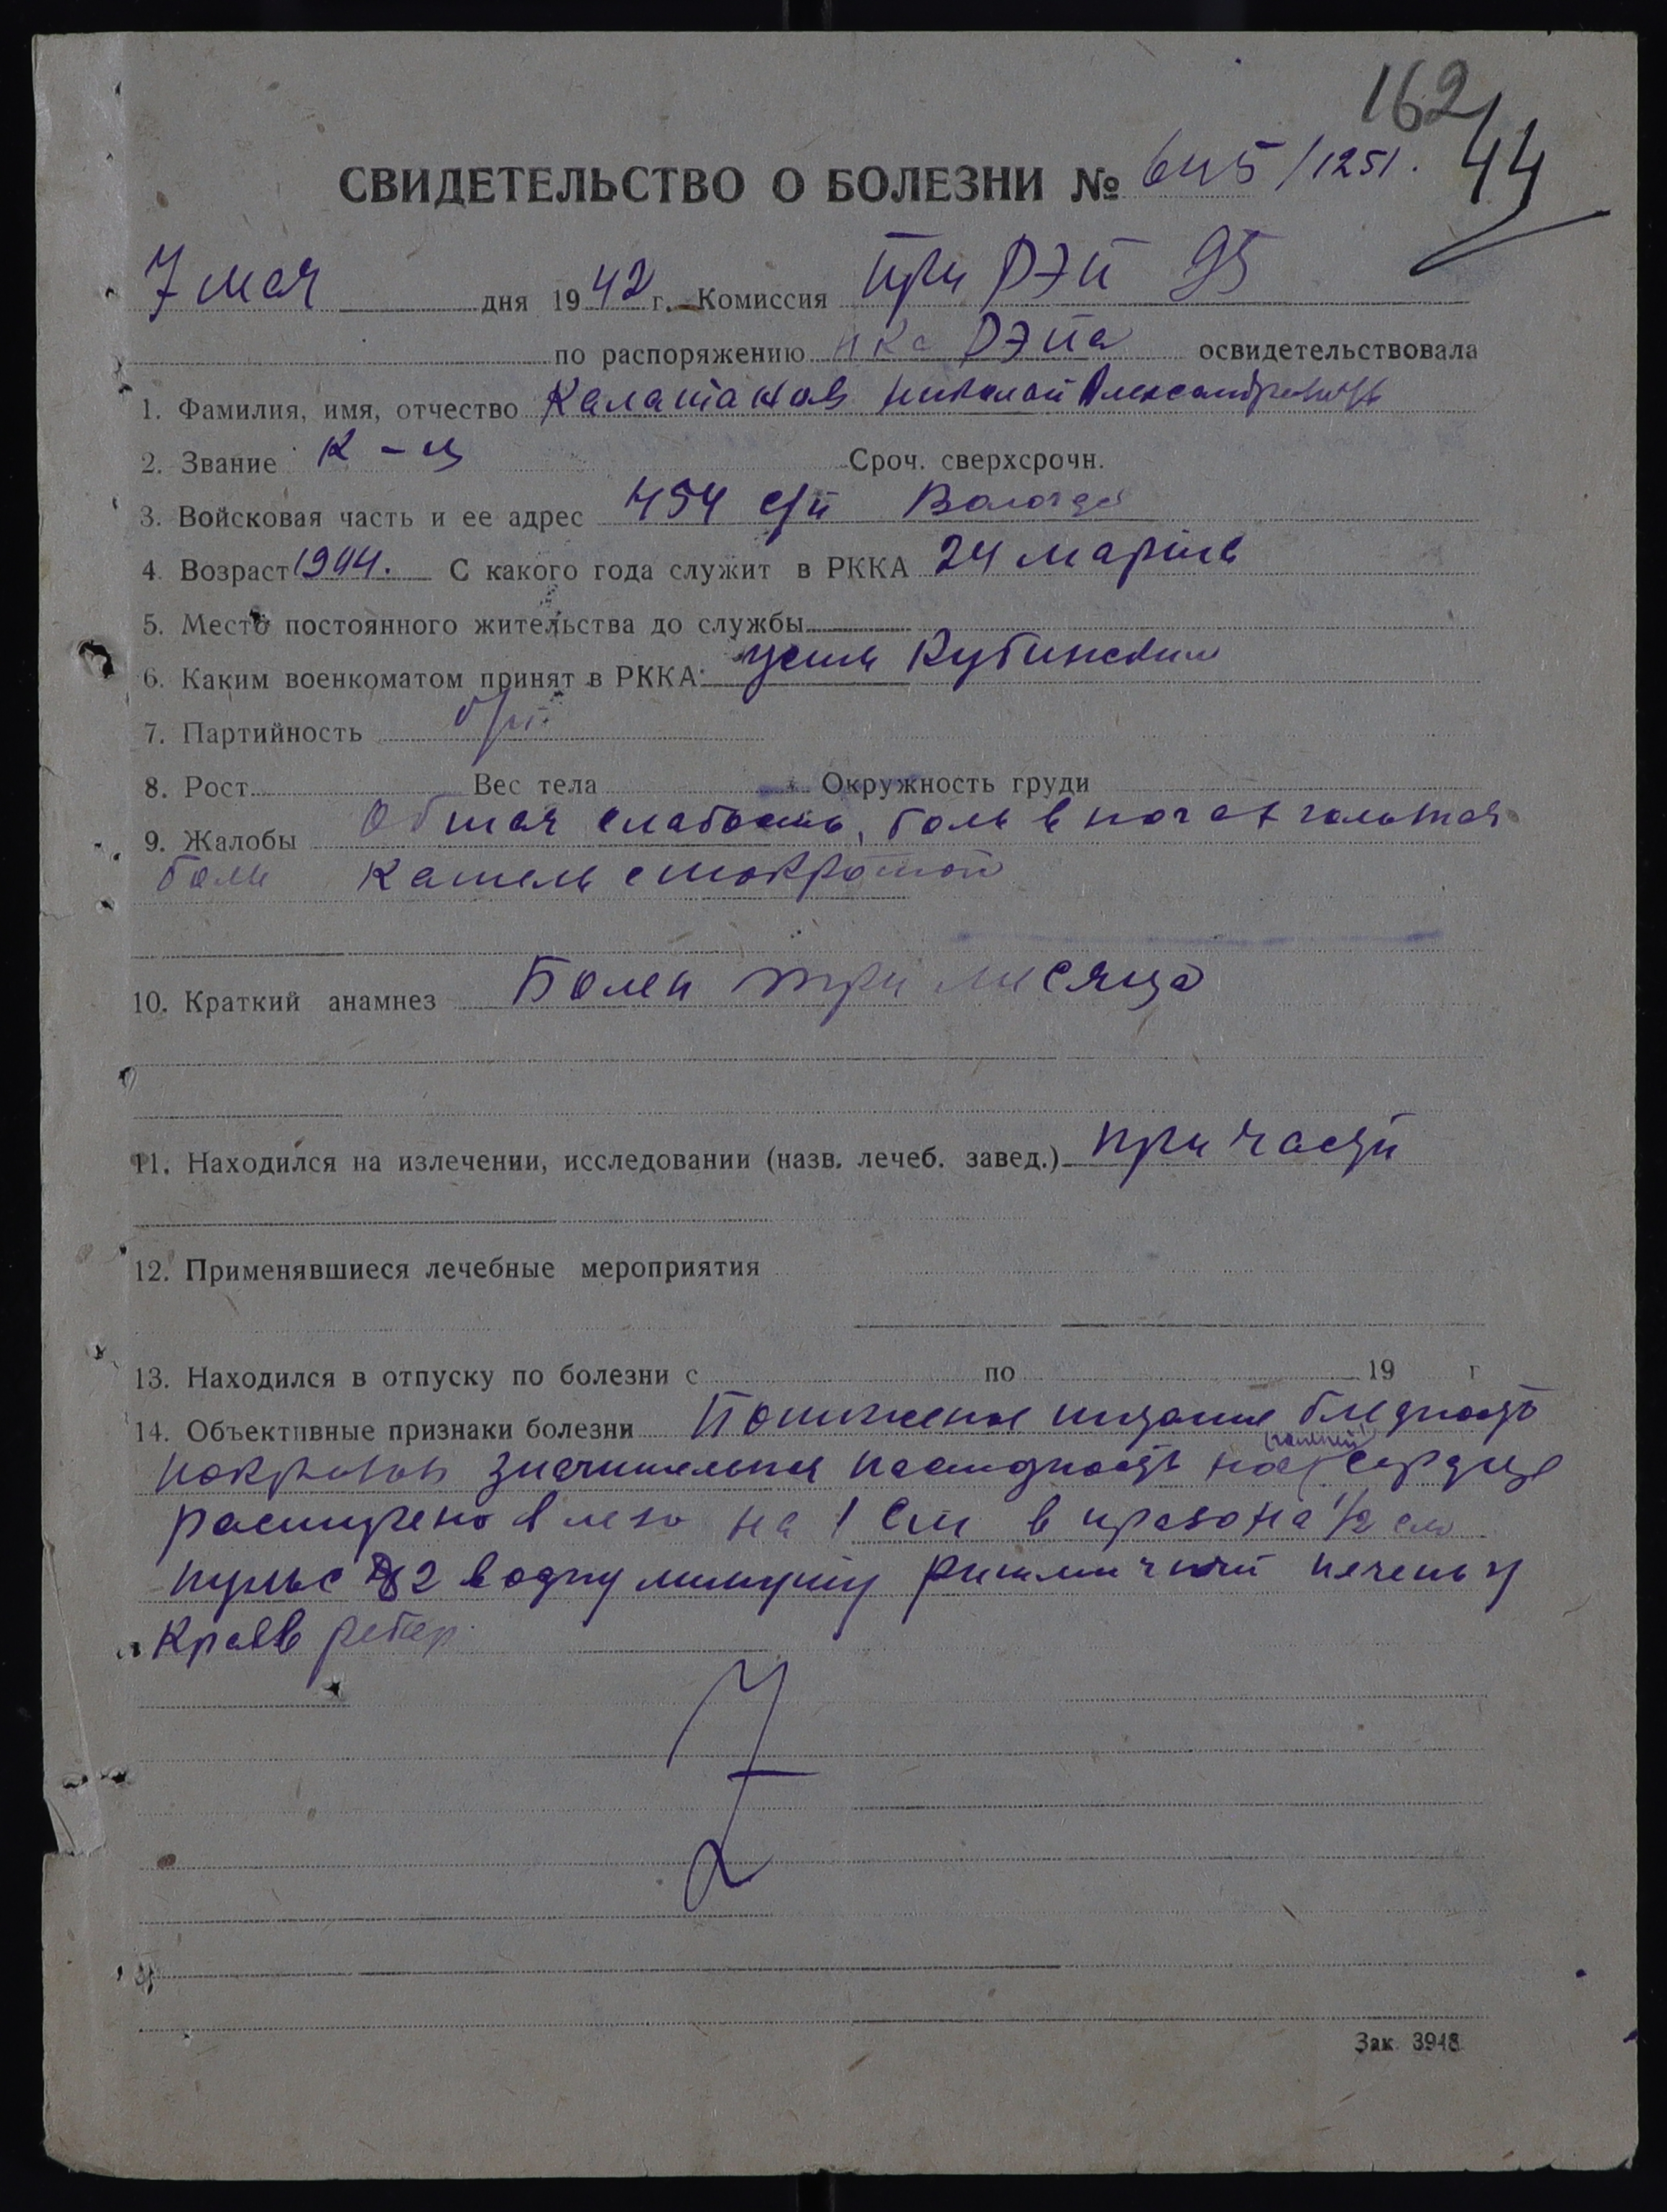 162
44
СВИДЕТЕЛЬСТВО О БОЛЕЗНИ № 645/1251.
7 мая дня 1942 г. Комиссия при РЭП 95
по распоряжению нка РЭПа освидетельствовала
1. Фамилия, имя, отчество Калашанов Николай Александрович
2. Звание к-ц Сроч. сверхсрочн.
3. Войсковая часть и ее адрес 454 с/п Вологда
4. Возраст С какого года служит в РККА 24 марта
5. Место постоянного жительства до службы
6. Каким военкоматом принят в РККА: Усть Кубинским
7. Партийность б/п.
8. Рост Вес тела Окружность груди
9. Жалобы Общая слабость, боль в ногах
боли кашель с мокротой
10. Краткий анамнез Болен три месяца
11. Находился на излечении, исследовании (назв. лечеб. завед.) при части
12. Применявшиеся лечебные мероприятия
13. Находился в отпуску по болезни с по 19 г
14. Объективные признаки болезни Пониженое питание бледность
покровов значительная пастозность сердце
расширено влево на 1 см в право на 1/2 см
пульс 82 в одну минуту ритмичный печень у
края ребер
Зак. 3948